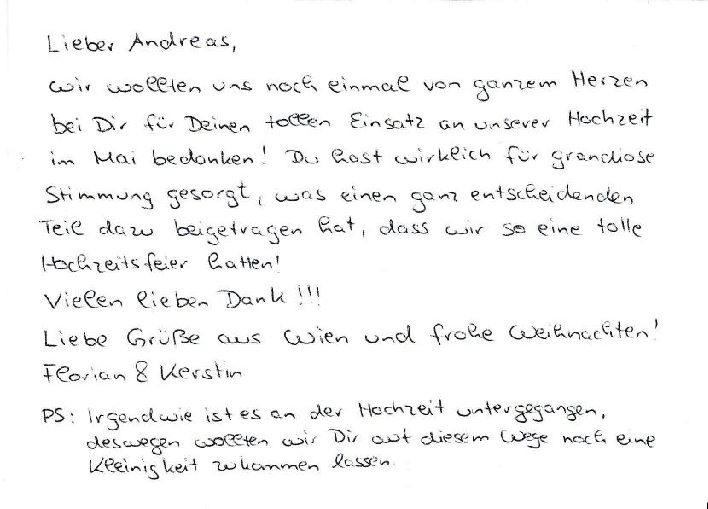 Lieber Andreas,
wir wollten uns noch einmal von ganzem Herzen
bei Dir für Deinen tollen Einsatz an unserer Hochzeit
im Mai bedanken! Du hast wirklich für grandiose
Stimmung gesorgt, was einen ganz entscheidenden
Teil dazu beigetragen hat, dass wir so eine tolle
Hochzeitsfeier hatten!
Vielen lieben Dank!!!
Liebe Grüße aus Wien und frohe Weihnachten!
Florian & Kerstin
PS: Irgendwie ist es an der Hochzeit untergegangen,
deswegen wollten wir Dir auf diesem Wege noch eine
Kleinigkeit zukommen lassen.